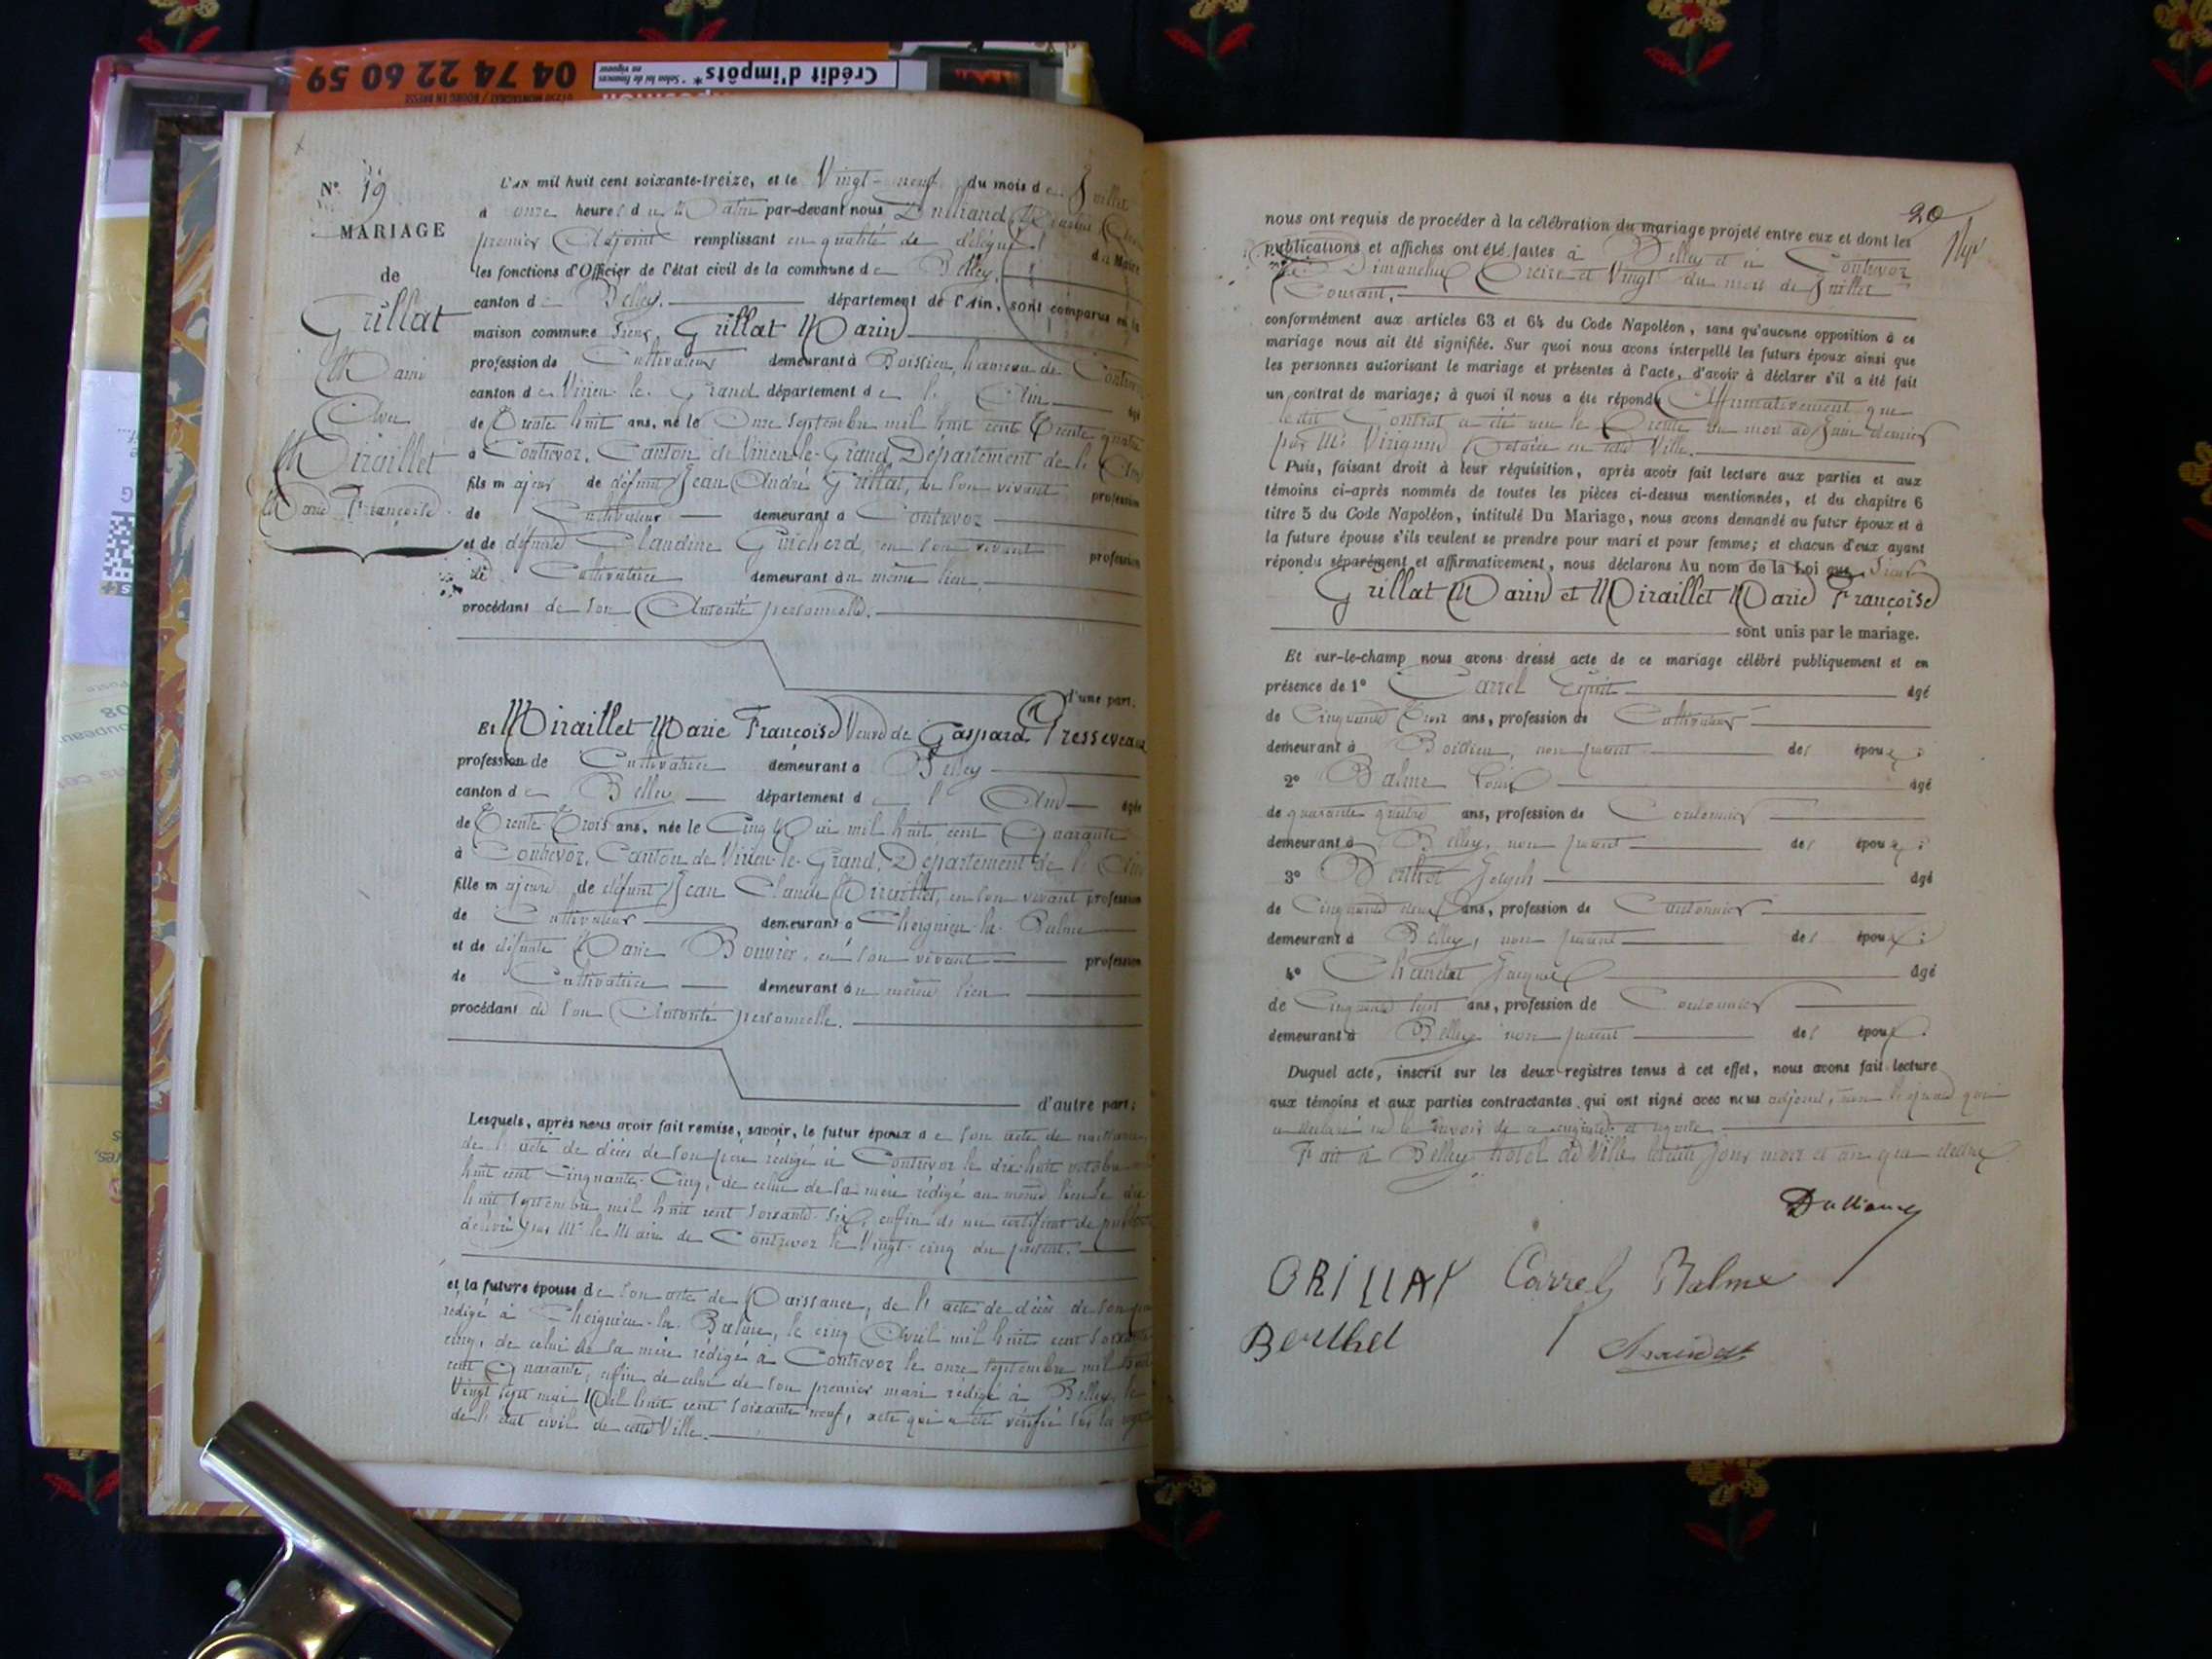 04 74 22 60 59
Crédit d'impôts*
* Selon loi de finances en vigueur
01250 MONTAGNAT / BOURG EN BRESSE
N° 19
MARIAGE
de
Grillat
Marin
Avec
Miraillet
Marie Françoise
L'AN mil huit cent soixante-treize, et le Vingt-neuf du mois de Juillet
à onze heures du Matin par-devant nous
premier Adjoint remplissant en qualité de délégué du Maire
les fonctions d'Officier de l'état civil de la commune de Belley,
canton de Belley, département de l'Ain, sont comparus en la
maison commune Sieur Grillat Marin
profession de Cultivateur demeurant à Boissieu, hameau de Contrevoz
canton de Virieu-le-Grand département de l'Ain âgé
de Trente huit ans, né le Onze Septembre mil huit cent Trente quatre
à Contrevoz, Canton de Virieu-le-Grand, Département de l'Ain
fils majeur de défunt Jean André Grillat, en son vivant profession
de Cultivateur demeurant à Contrevoz
et de défunte Claudine Guicherd, en son vivant profession
de Cultivatrice demeurant au même lieu,
procédant de son Autorité personnelle.
d'une part;
Et Miraillet Marie Françoise Veuve de Gaspard Presseveaux
profession de Cultivatrice demeurant à Belley
canton de Belley département de l'Ain âgée
de Trente Trois ans, née le Cinq Mai mil huit cent Quarante
à Contrevoz, Canton de Virieu-le-Grand, Département de l'Ain
fille majeure de défunt Jean Claude Miraillet, en son vivant profession
de Cultivateur demeurant à Cheignieu-la-Balme
et de défunte Marie Bouvier, en son vivant profession
de Cultivatrice demeurant au même lieu
procédant de son Autorité personnelle.
d'autre part;
Lesquels, après nous avoir fait remise, savoir, le futur époux de son acte de naissance,
de l'acte de décès de son père rédigé à Contrevoz le dix huit octobre mil
huit cent Cinquante-Cinq, de celui de sa mère rédigé au même lieu le dix
huit Septembre mil huit cent soixante-six, enfin du certificat de publication
délivré par Mr le Maire de Contrevoz le Vingt-cinq du présent.
et la future épouse de son acte de Naissance, de l'acte de décès de son père
rédigé à Cheignieu-la-Balme, le cinq Avril mil huit cent soixante
cinq, de celui de sa mère rédigé à Contrevoz le onze Septembre mil huit
cent Quarante, enfin de celui de son premier mari rédigé à Belley, le
Vingt sept mai Mil huit cent soixante neuf, acte qui a été vérifié sur les registres
de l'état civil de cette Ville.
20
nous ont requis de procéder à la célébration du mariage projeté entre eux et dont les
publications et affiches ont été faites à Belley et à Contrevoz
les Dimanches Treize et Vingt du mois de Juillet
Courant,
conformément aux articles 63 et 64 du Code Napoléon, sans qu'aucune opposition à ce
mariage nous ait été signifiée. Sur quoi nous avons interpellé les futurs époux ainsi que
les personnes autorisant le mariage et présentes à l'acte, d'avoir à déclarer s'il a été fait
un contrat de mariage; à quoi il nous a été répondu Affirmativement que
ledit Contrat a été reçu le Trente du mois de Juin dernier
par Me Notaire en cette Ville.
Puis, faisant droit à leur réquisition, après avoir fait lecture aux parties et aux
témoins ci-après nommés de toutes les pièces ci-dessus mentionnées, et du chapitre 6
titre 5 du Code Napoléon, intitulé Du Mariage, nous avons demandé au futur époux et à
la future épouse s'ils veulent se prendre pour mari et pour femme; et chacun d'eux ayant
répondu séparément et affirmativement, nous déclarons Au nom de la Loi que Sieur
Grillat Marin et Miraillet Marie Françoise
sont unis par le mariage.
Et sur-le-champ nous avons dressé acte de ce mariage célébré publiquement et en
présence de 1° Carrel âgé
de Cinquante Trois ans, profession de Cultivateur
demeurant à Boissieu, non parent des époux;
2° Balme Louis âgé
de quarante quatre ans, profession de Cordonnier
demeurant à Belley, non parent des époux;
3° Berthet Joseph âgé
de Cinquante deux ans, profession de Cantonnier
demeurant à Belley, non parent des époux;
4° Chandat Jacques âgé
de Cinquante sept ans, profession de Cordonnier
demeurant à Belley non parent des époux.
Duquel acte, inscrit sur les deux registres tenus à cet effet, nous avons fait lecture
aux témoins et aux parties contractantes qui ont signé avec nous adjoint, non l'épouse qui
a déclaré ne le savoir de ce enquise et requise
Fait à Belley hôtel de Ville lesdits jour mois et an que dessus
GRILLAT Carrel Balme
Berthet Chandat